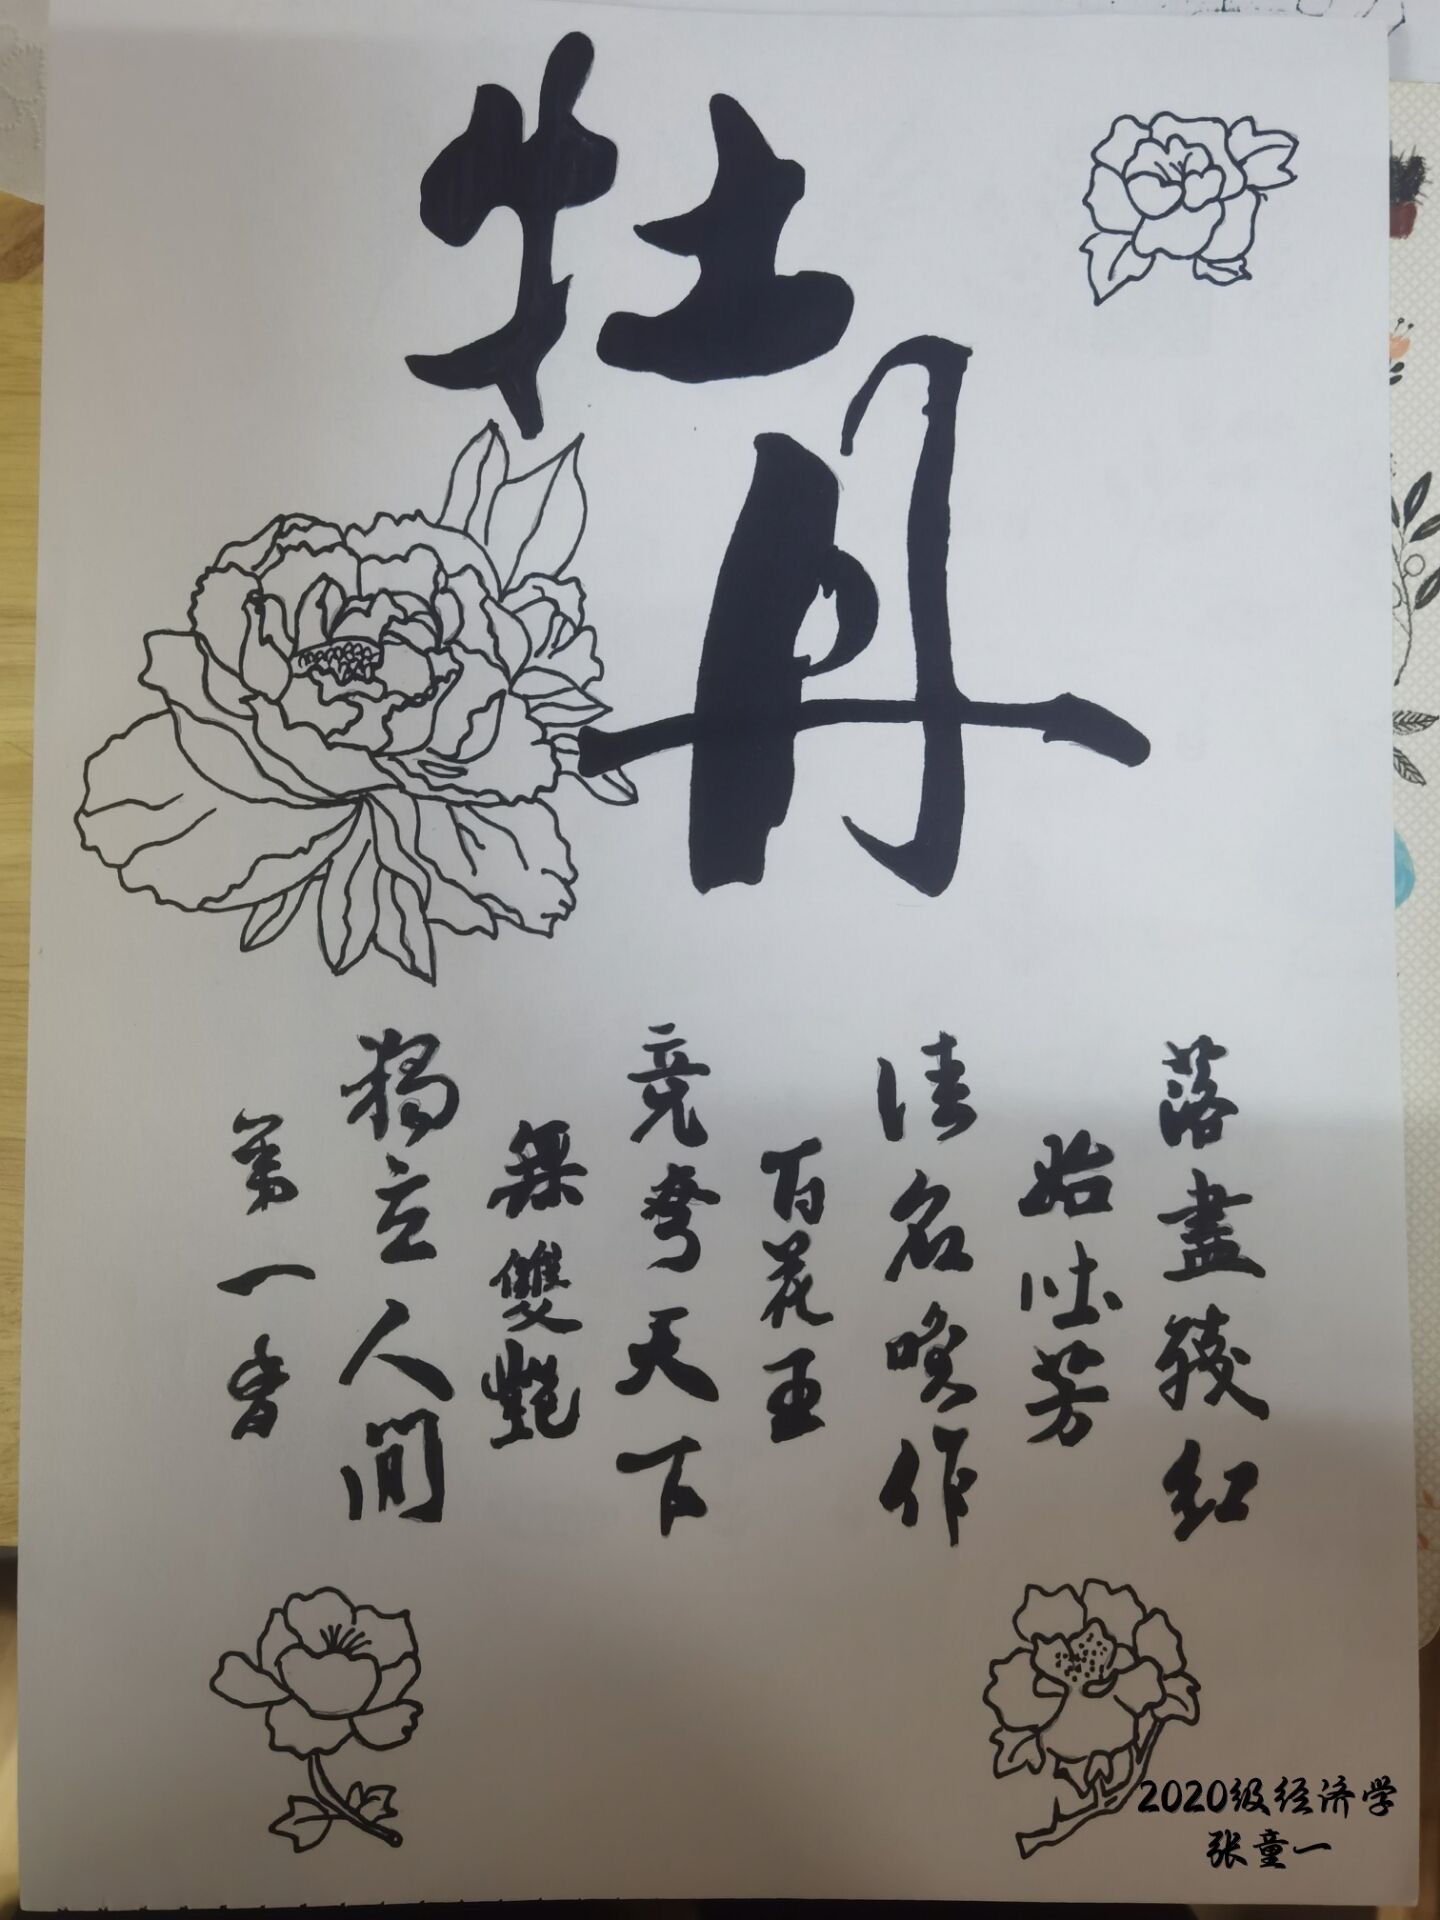 牡丹
落盡殘紅
始吐芳
佳名喚作
百花王
競夸天下
無雙艷
獨立人間
第一香
2020级经济学
张童一